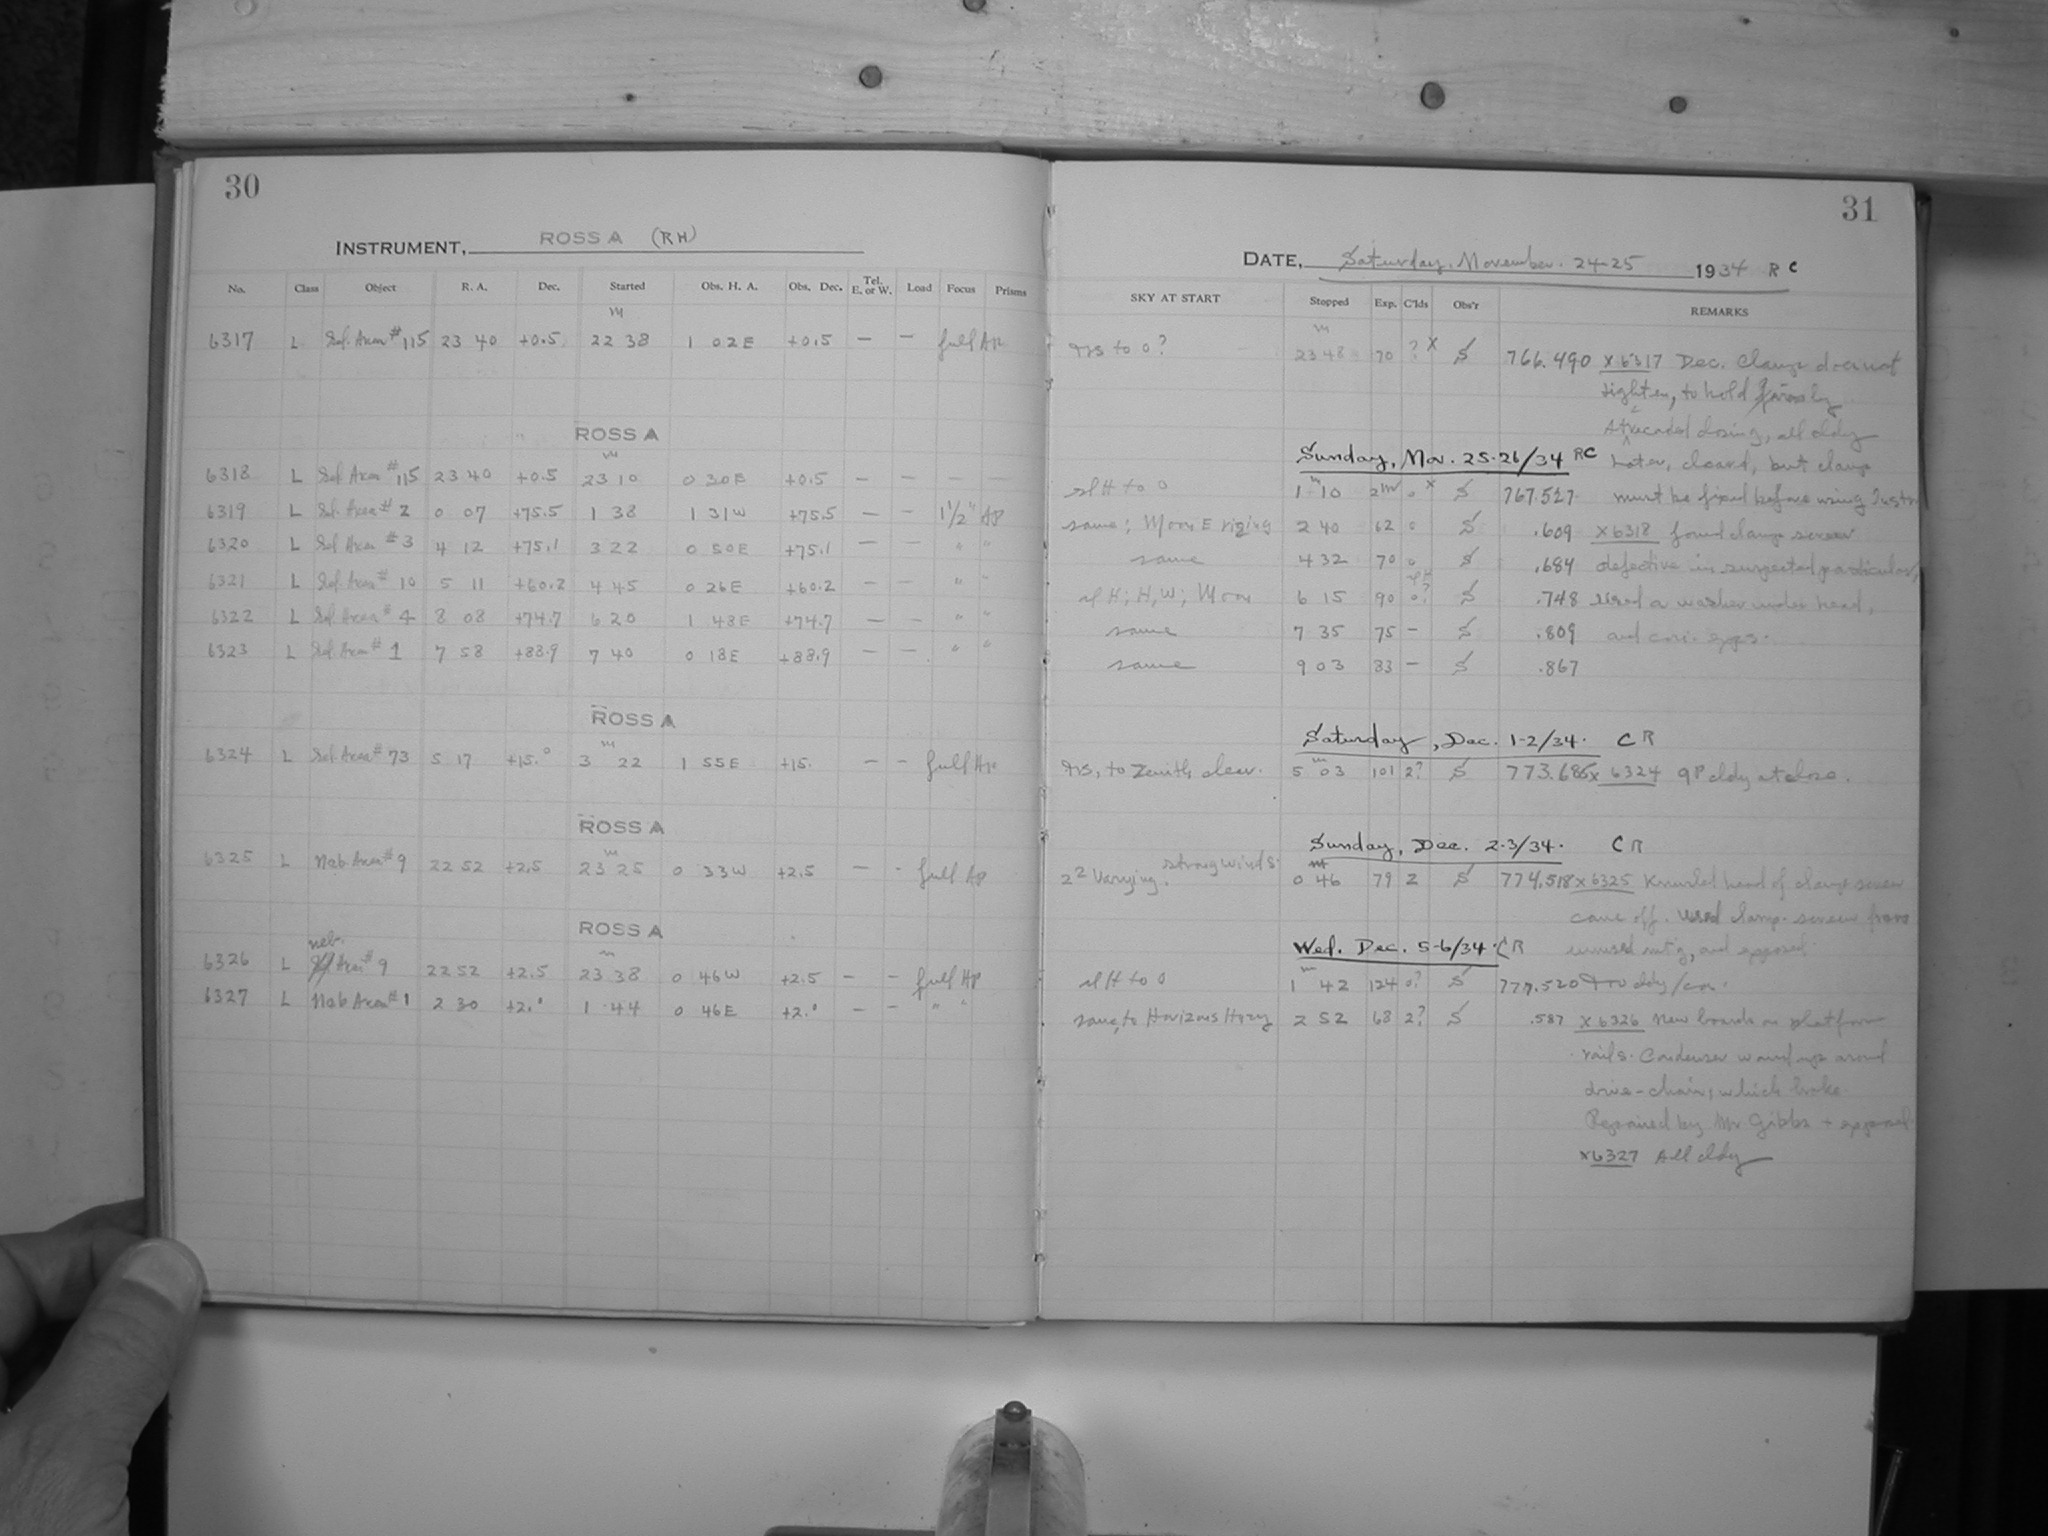 30
INSTRUMENT, ROSS A (RH)
No. Class Object R. A. Dec. Started Obs. H. A. Obs. Dec. Tel. E. or W. Load Focus Prisms
m
6317 L Sel. Area #115 23 40 +0.5 22 38 1 02E +0.5 — — full Ap
ROSS A
m
6318 L Sel. Area #115 23 40 +0.5 23 10 0 30E +0.5 — — — —
6319 L Sel. Area #2 0 07 +75.5 1 38 1 31W +75.5 — — 1 1/2" Ap
6320 L Sel Area #3 4 12 +75.1 3 22 0 50E +75.1 — — " "
6321 L Sel. Area # 10 5 11 +60.2 4 45 0 26E +60.2 — — " "
6322 L Sel. Area # 4 8 08 +74.7 6 20 1 48E +74.7 — — " "
6323 L Sel Area # 1 7 58 +88.9 7 40 0 18E +88.9 — — " "
ROSS A
m
6324 L Sel. Area #73 5 17 +15.° 3 22 1 55E +15. — - full Ap
ROSS A
m
6325 L Neb. Area #9 22 52 +2.5 23 25 0 33W +2.5 — - full Ap
ROSS A
neb. m
6326 L Area #9 22 52 +2.5 23 38 0 46W +2.5 — — full Ap
6327 L Neb Area #1 2 30 +2.° 1 44 0 46E +2.° — - " "
31
DATE, Saturday, November. 24-25 1934 RC
SKY AT START Stopped Exp. C'lds Obs'r REMARKS
m
to 0? 23 48 70 ? x S 766.490 x 6317 Dec. Clamp does not
tighten, to hold firmly
closing, all cldy
Sunday, Nov. 25-26/34 RC Later, cleared, but clamp
m
sl H to 0 1 10 0 x S 767.527 must be fixed before using Instr
same; Moon E rizing 2 40 62 0 S .609 x 6318 found clamp screw
same 4 32 70 0 S .684 defective in suspected particular,
sl H; H, W; Moon 6 15 90 0? S .748 used a washer under head,
same 7 35 75 - S .809 and con. expos.
same 9 03 83 — S .867
Saturday, Dec. 1-2/34. CR
m
to Zenith clear. 5 03 101 2? S 773.685 x 6324 9P cldy at close.
Sunday, Dec. 2-3/34. CR
2² Varying. strong winds. 0 46 79 2 S 774.518 x 6325 Knurled head of clamp screw
came off. Used clamp-screw from
Wed. Dec. 5-6/34. CR unused mt'g, and exposed.
m
sl H to 0 1 42 124 0? S 777.520
same, to Horizons Hazy 2 52 68 2? S .587 x 6326 New boards on platform
rails. Condenser wound up around
drive-chain, which broke
Repaired by Mr Gibbs + exposed
x 6327 All cldy